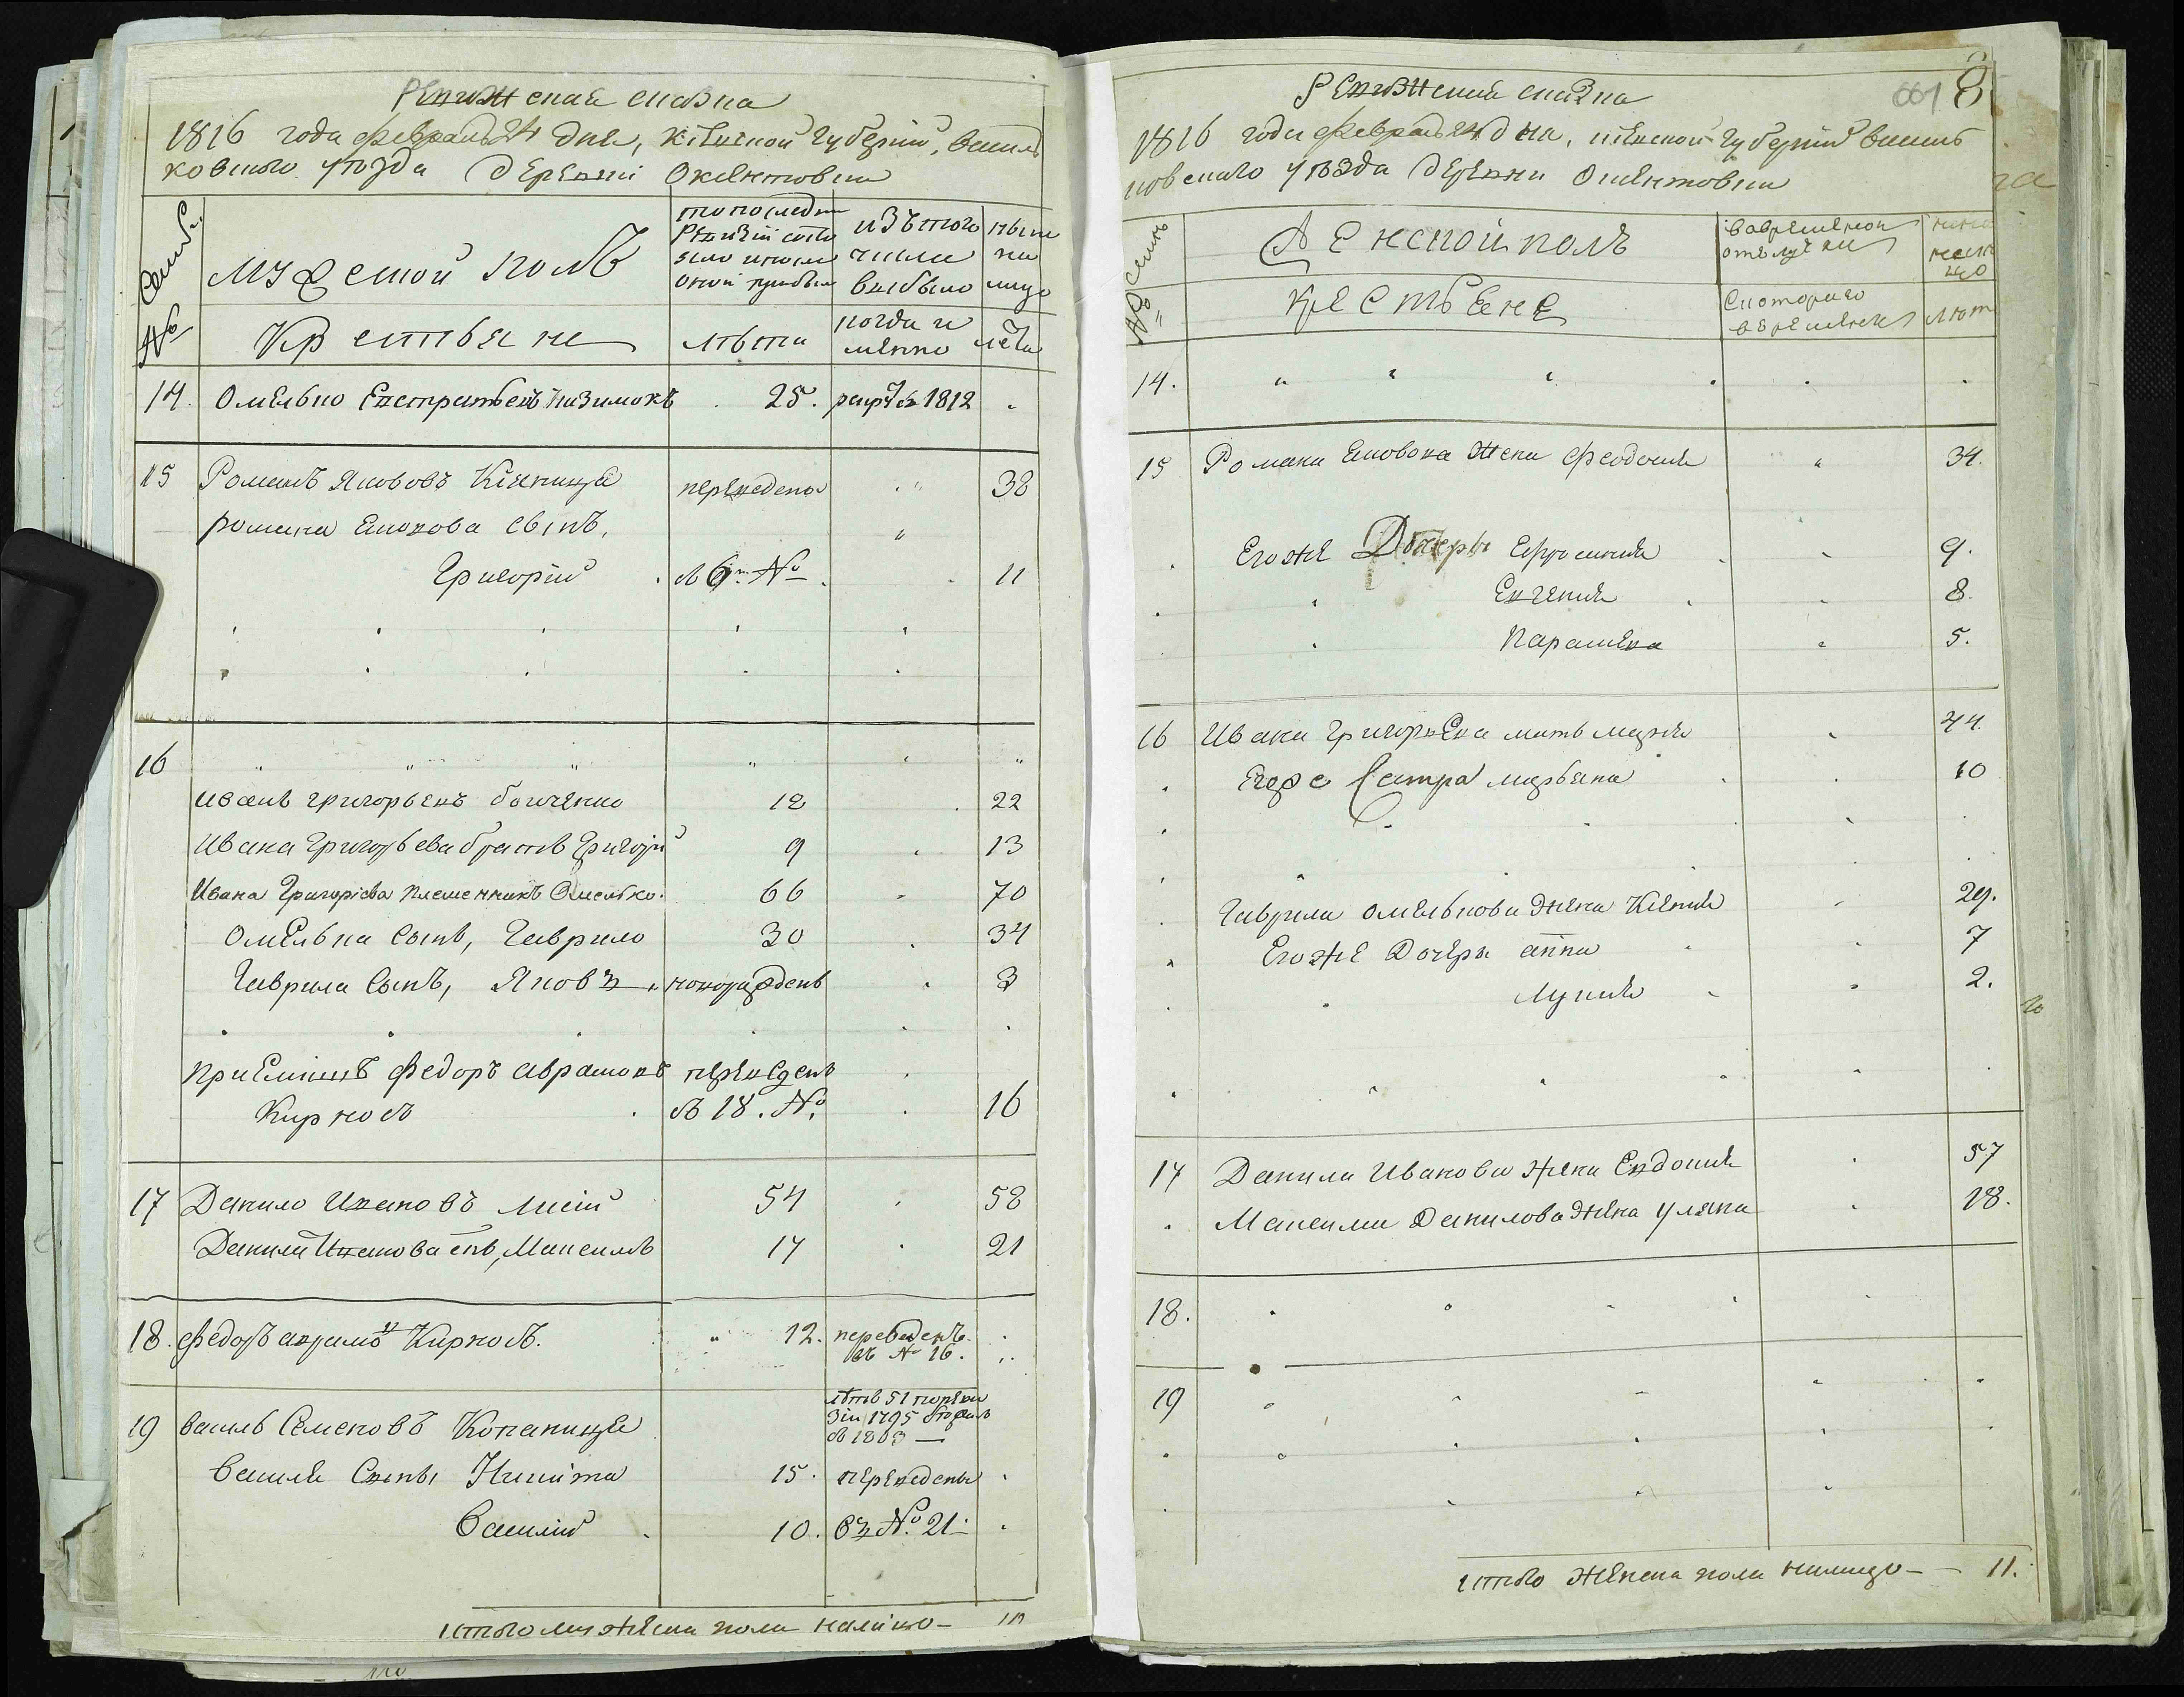 Ревизская сказка
1816 года февраля 24 дня, Кіевской губерніи, василь
ковского уѣзда деревни Оксентовки
Семьи №
Мужеской полъ
Крестьяне
по последн
ревизіи состо
яло и после
оной прибыло
лѣта
изъ того
числа
выбыло
когда и
менно
ныне
на
лицо
лета
14. Омелько Евстратьевъ Низимокъ 25. рекрут въ 1812
15 Романъ Якововъ Кияница переведены 38
романа Якокова сынъ,
Григорій съ 6м № 11
16
Иванъ григорьевъ 12 22
Ивана Григорьева братъ Григорій 9 13
Ивана Григоріева племенникъ Омелько. 66 70
Омелька Сынъ, Гаврило 30 34
Гаврила Сынъ, Яковъ новорожденъ 3
приемишъ Федоръ Аврамовъ переведенъ
Кирносъ съ 18. № 16
17 Данило Ивановъ Лисій 54 58
Данила Иванова снъ, Максимъ 17 21
18. Федоръ аврамовъ Кирносъ. 12. переведенъ
въ № 16.
лѣтъ 51 по реви
зіи 1795
19 василь Семеновъ Копаница въ 1803
Василя Сыны Никита 15. переведены
Василій 10. въ № 21.
итого мужеска пола налицо —
Ревизская сказка 661 8
1816 года февраля 24 дня, кіевской губерніи василь
ковскаго уѣзда деревни Оксентовки
№ семьи
Женской полъ
Крестьяне
во временной
отълучки
с котораго
времени
ныне
налицо
лет
14.
15 Романа Яковова жена Феодосия 34.
Его же Дочеры Ефросиния 9.
Евгения 8.
Парасkева 5.
16 Ивана Григорьева мать мария 44.
Его же Сестра марьяна 10
Гаврила Омелькова жена Ксения 29.
Его же Дочеры анна 7
Лукия 2.
17 Данила Иванова жена Евдокия 57
Максима Данилова жена Уляна 18.
18.
19
итого женска пола налицо — 11.